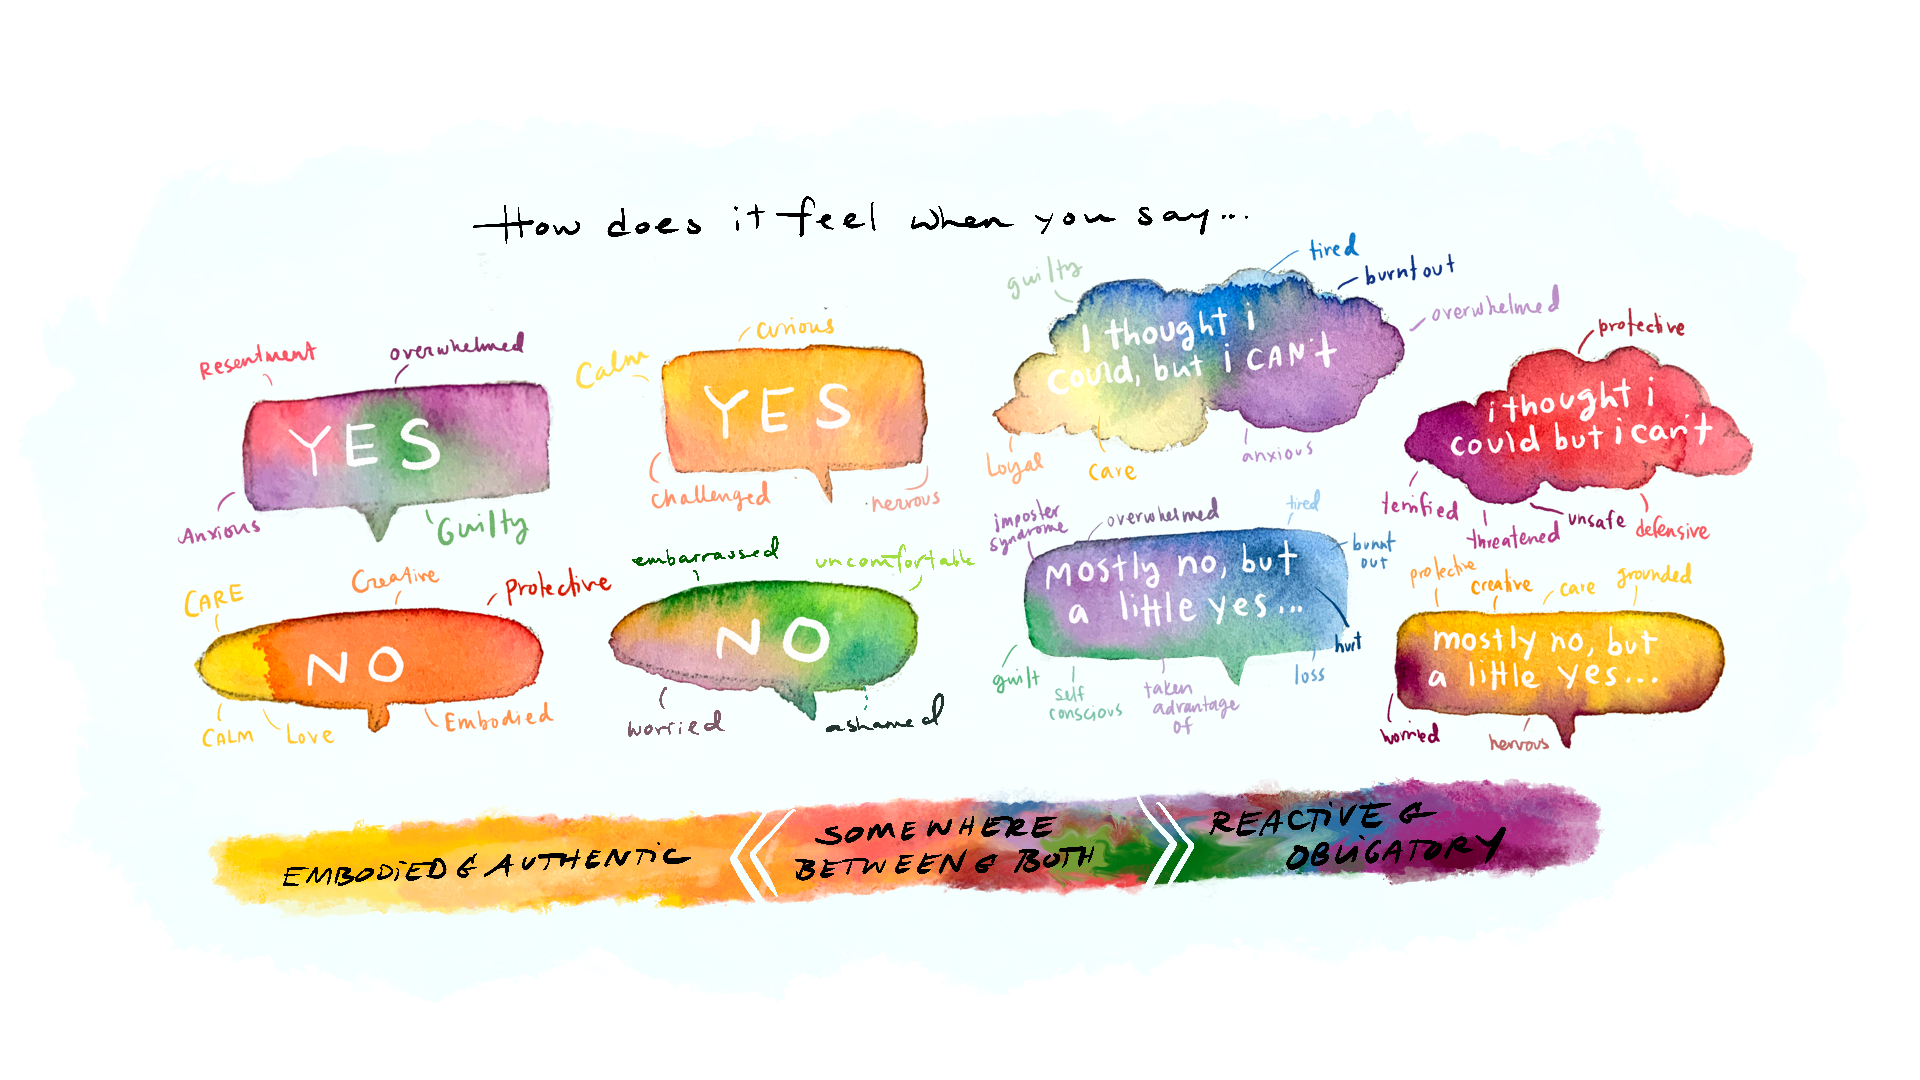 How does it feel when you say...
Resentment
overwhelmed
YES
Anxious
Guilty
Calm
curious
YES
challenged
nervous
guilty
tired
burnt out
overwhelmed
I thought i
could, but i CAN't
Loyal
care
anxious
protective
i thought i
could but i can't
terrified
threatened
unsafe
defensive
CARE
Creative
protective
NO
CALM
Love
Embodied
embarraused
uncomfortable
NO
worried
ashamed
imposter
syndrome
overwhelmed
tired
burnt
out
mostly no, but
a little yes...
hurt
guilt
self
conscious
taken
advantage
of
loss
protective
creative
care
grounded
mostly no, but
a little yes...
worried
nervous
EMBODiED & AUTHENTiC
SOMEWHERE
BETWEEN & BOTH
REACTiVE &
OBLiGATORY